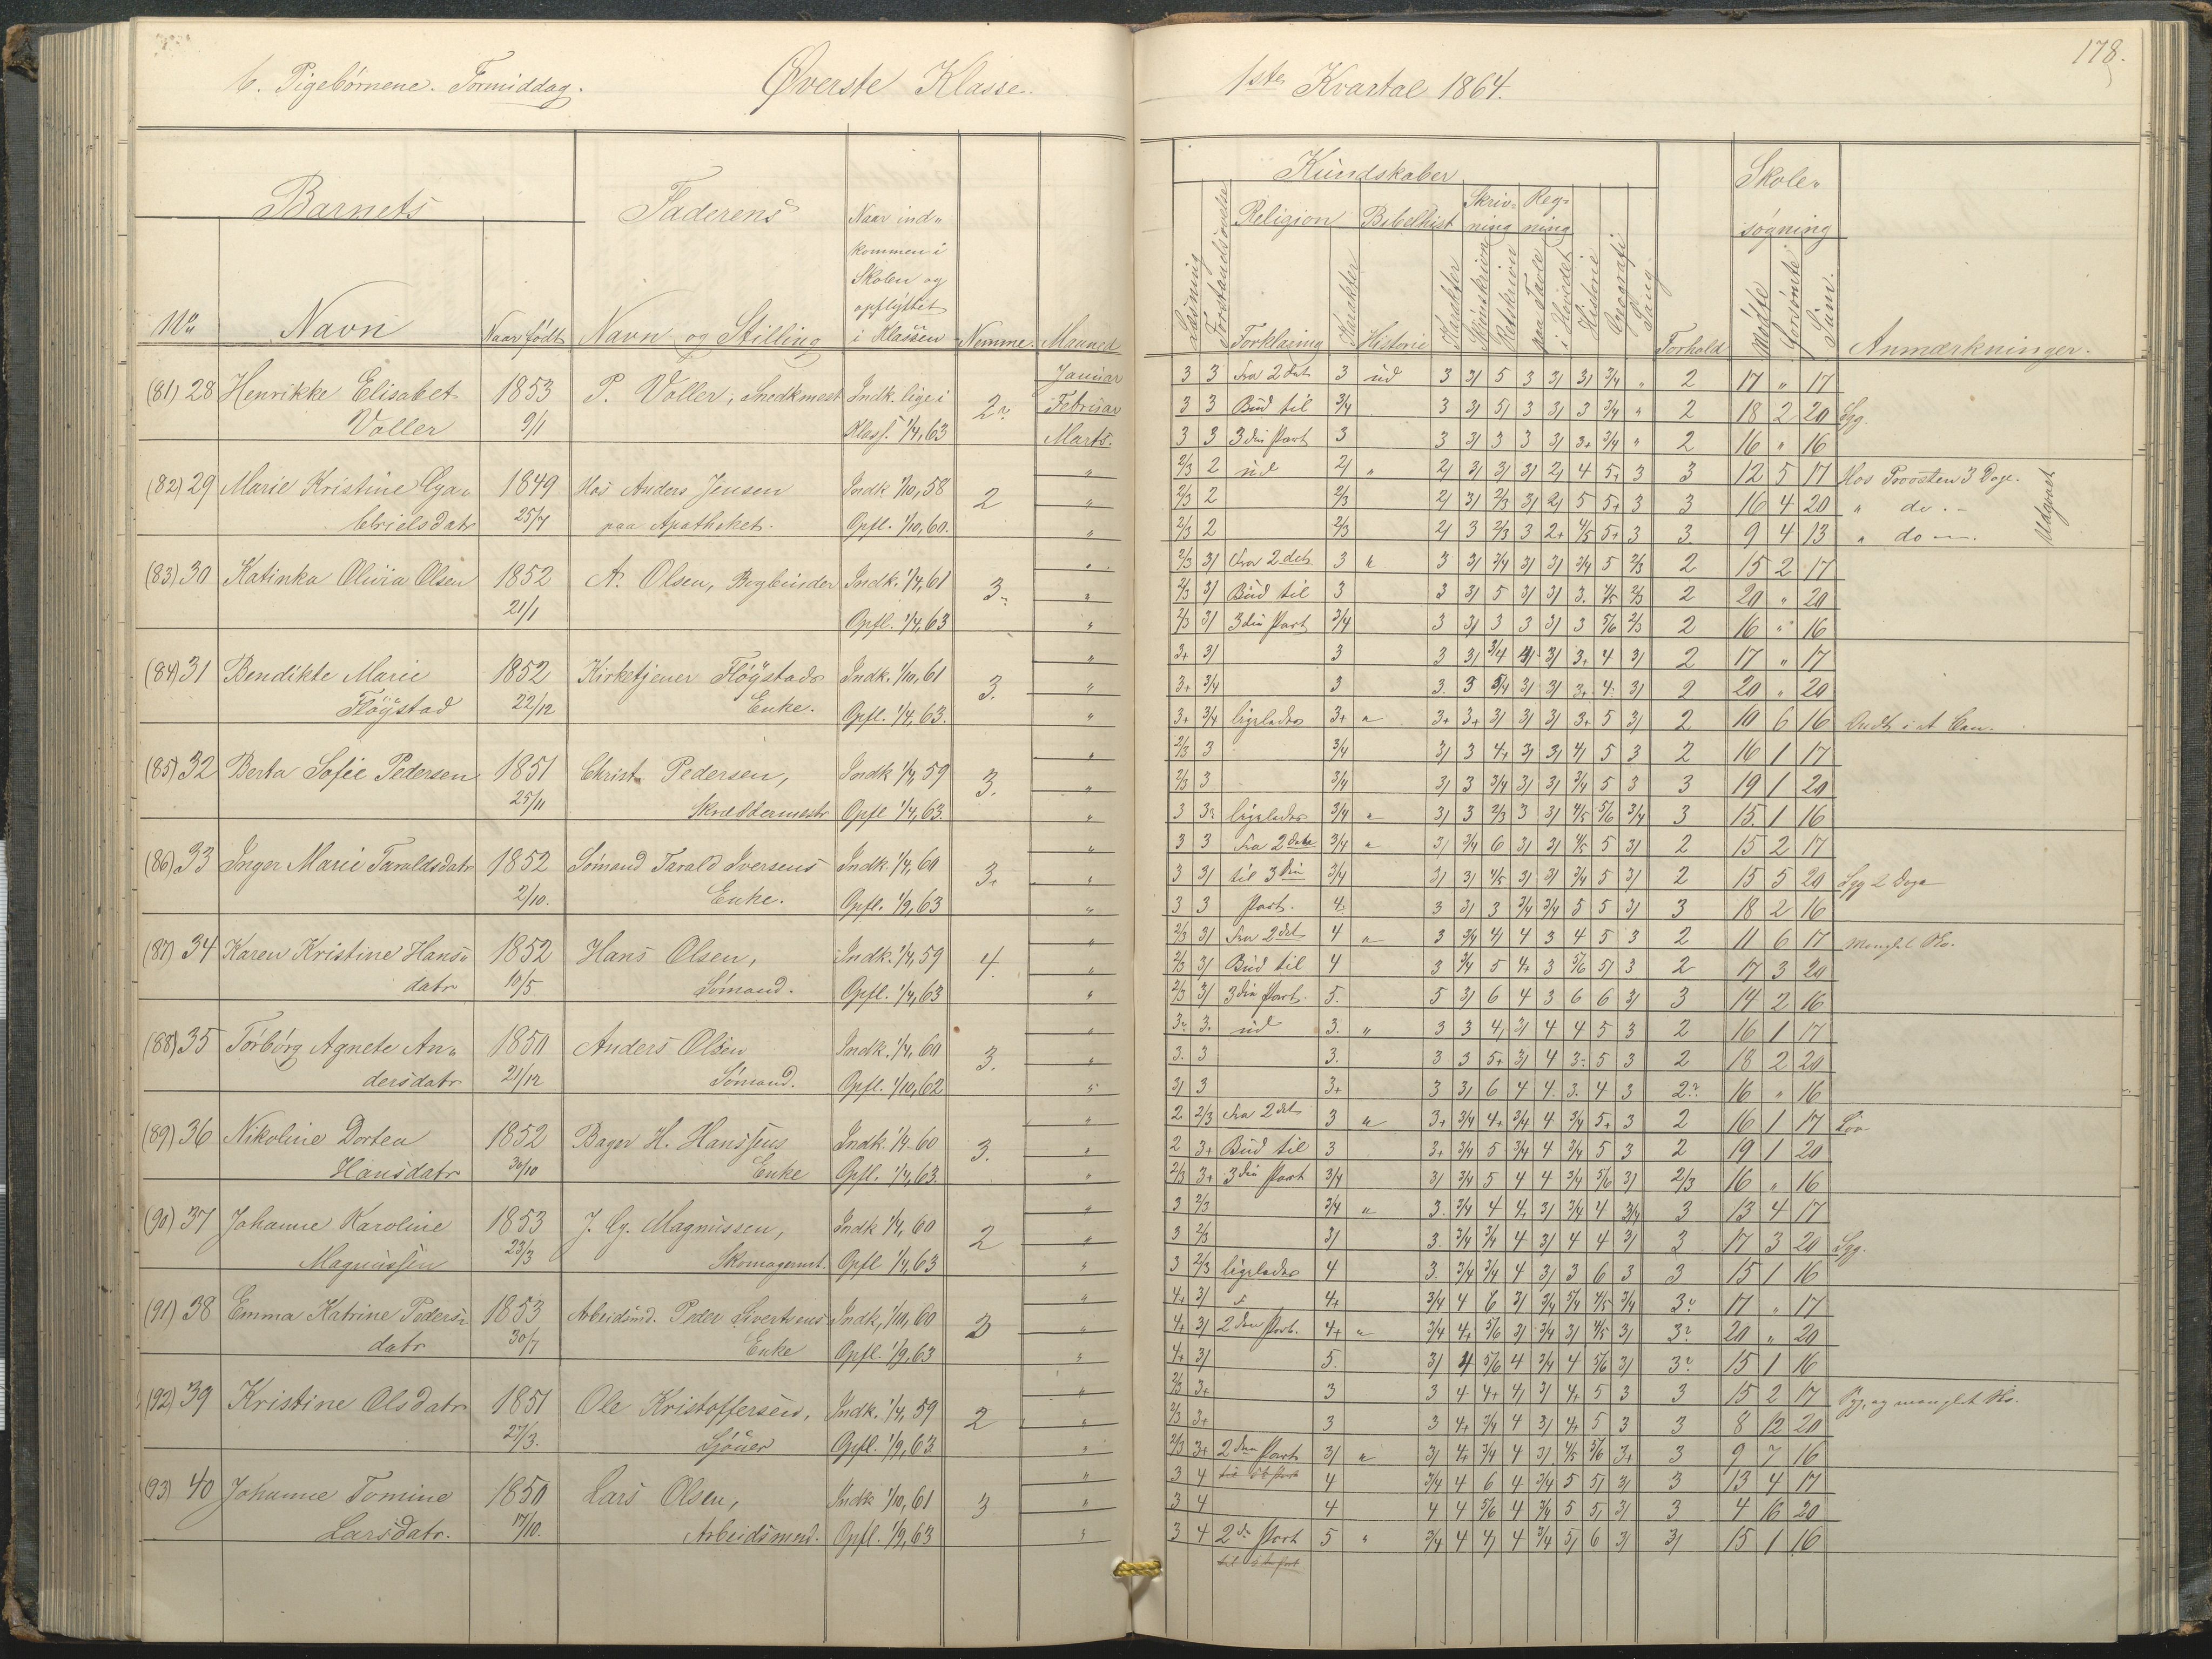 178.
b. Pigebørnene. Formiddag. Øverste Klasse. 1ste Kvartal 1864.
Barnets Faderens Naar ind-
kommen i
Skolen og
opflyttet
i Klassen
No Navn Naar født Navn og Stilling Nemme. Maaned
Kundskaber Skole-
søgning
Religion Bibelhist Skriv-
ning Reg-
ning
Læsning Forstandsøvelse Forklaring Karakter Historie Karakter Skjønskrivn Retskrivn paa Tavle i Hovedet Historie Geografi Sang Forhold Mødte Forsømte Sum. Anmærkninger.
(81) 28 Henrikke Elisabet 1853 P. Voller, Snedkmest Indk. lige i 2 Januar
Voller 9/1 Klass. 1/4,63 Februar
Marts.
3 3 Fra 2det 3 ud 3 3/ 5 3 3/ 3/ 3/4 " 2 17 " 17
3 3 Bud til 3/4 3 3/ 5/ 3 3/ 3 3/4 " 2 18 2 20 Syg.
3 3 3die Part 3 3 3/ 3 3 3/ 3+ 3/4 " 2 16 " 16
(82) 29 Marie Kristine 1849 Hos Anders Jensen Indk 1/10,58 2
25/7 paa Apotheket. Opfl. 1/10,60.
2/3 2 ud 2/ " 2/ 3/ 3/ 3/ 2/ 4 5+ 3 3 12 5 17 Hos Provsten 3 Dage.
2/3 2 2/3 2/ 3/ 2/3 3/ 2/ 5 5+ 3 3 16 4 20 " do. -
2/3 2 2/3 2/ 3 2/3 3 2+ 4/5 5+ 3 3 9 4 13 " do -
Udgaaet
(83) 30 Katinka Olivia Olsen 1852 A. Olsen, Bogbinder Indk. 1/4,61 3
21/1 Opfl. 1/4,63
2/3 3/ Fra 2det 3 " 3 3/ 3/4 3/ 3/ 3/4 5 2/3 2 15 2 17
2/3 3/ Bud til 3 3 3/ 5 3/ 3/ 3. 4/5 2/3 2 20 " 20
2/3 3/ 3die Part 3/4 3 3/ 3 3 3/ 3 5/6 2/3 2 16 " 16
(84) 31 Bendikte Marie 1852 Kirketjener Fløystads Indk. 1/10,61 3.
Fløystad 22/12 Enke. Opfl. 1/4,63.
3+ 3/ 3 3 3/ 3/4 4/ 3/ 3+ 4 3/ 2 17 " 17
3+ 3/4 3 3. 3 5/4 3/ 3/ 3+ 4. 3/ 2 20 " 20
3+ 3/4 ligeledes 3+ " 3+ 3+ 3/ 3/ 3/ 3+ 5 3/ 2 10 6 16
(85) 32 Berta Sofie Pedersen 1851 Christ. Pedersen, Indk 1/4,59 3.
25/11 Skreddermestr Opfl 1/4,63.
2/3 3 3/4 3/ 3 4+ 3/ 3/ 4/ 5 3 2 16 1 17
2/3 3 3/4 3/ 3 3/4 3/ 3/ 3/4 5 3 3 19 1 20
3 3 ligeledes 3/4 " 3/ 3 2/3 3 3/ 4/5 5/6 3/4 3 15. 1 16
(86) 33 Inger Marie Taraldsdatr 1852 Sømand Tarald Iversens Indk. 1/4,60 3+
2/10. Enke. Opfl. 1/9,63
3 3 Fra 2den 3/4 " 3/ 3/4 6 3/ 3/ 4/5 5 3/ 2 15 2 17
3 3/ til 3die 3/4 3/ 3/ 4/5 3/ 3/ 3/4 5 3/ 2 15 5 20 Syg 2 Dage
3 3 Part. 4. 3 3/ 3 3/4 3/4 5 5 3/ 3 18 2 16
(87) 34 Karen Kristine Hans- 1852 Hans Olsen, Indk. 1/4,59 4.
datr 10/5 Sømand. Opfl. 1/4,63
2/3 3/ Fra 2det 4 " 3 3/4 4/ 4 3 4 5 3 2 11 6 17 manglet Sko.
2/3 3/ Bud til 4 3 3/4 5 4+ 3 5/6 5/ 3 2 17 3 20
2/3 3/ 3die Part. 5. 5 3/ 6 4 3 6 6 3/ 3 14 2 16
(88) 35 Torborg Agnete An- 1850 Anders Olsen Indk. 1/4,60 3.
dersdatr 21/12 Sømand. Opfl. 1/10,62
3 3. ud 3. " 3 3 4/ 3/ 4 4 5 3 2 16 1 17
3. 3 3. 3 3 5+ 3/ 4 3 5 3 2 18 2 20
3/ 3 3+ 3 3/ 6 4 4. 3. 4 3 2 16 " 16
(89) 36 Nikoline Dortea 1852 Bager H. Hanssens Indk. 1/4 60 3.
Hansdatr 30/10 Enke Opfl. 1/4,63.
2 2/3 Fra 2det 3 " 3+ 3/4 4+ 3/4 4 3/4 5+ 3 2 16 1 17
2 3+ Bud til 3 3+ 3/4 5 3/4 4 3/4 5 3 2 19 1 20
2/3 3+ 3die Part 3/4 3/ 3/4 5 4 4 3/4 5/6 3/ 2/3 16 " 16
(90) 37 Johanne Karoline 1853 J. G. Magnussen, Indk 1/4,60 2
Magnussen 23/3 Skomagermst. Opfl 1/4,63
3 2/3 3/4 " 3. 3/4 4 4+ 3/ 3/4 4 3/4 3 13 4 17
3 2/3 3/ 3. 3/4 3/4 4 3/ 4 4 3/ 3 17 3 20 Syg.
3 2/3 ligeledes 4 3. 3/4 3/4 4 3/ 3 6 3 3 15 1 16
(91) 38 Emma Katrine Peders- 1853 Arbeidsmd. Peder Sivertsens Indk, 1/10,60 3
datr 30/7 Enke Opfl. 1/9,63
4+ 3/ 4+ 3/4 4 6 3/ 3/4 5/4 4/5 3/4 3 17 " 17
4+ 3/ 2den Part. 4+ " 3/4 4+ 5/6 3/ 3/4 3/ 4/5 3/ 3 20 " 20
4+ 3/ 5. 3/ 4 5/6 4 3/4 4 5/6 3/ 3 15 1 16
(92) 39 Kristine Olsdatr 1851 Ole Kristoffersen, Indk. 1/4,59 2
27/3. Opfl. 1/9,63
2/3 3+ 3 3 4 4+ 4/ 3/ 4+ 5 3 3 15 2 17 Syg, og manglet Sko.
2/3 3+ 3 3 4+ 3/4 4 3/ 4+ 5 3 3 8 12 20
2/3 3+ 2den Part 3/ " 3/ 4+ 3/4 4 3/ 4/5 5/6 3+ 3 9 7 16
(93) 40 Johanne Tomine 1850 Lars Olsen, Indk 1/10,61 3
Larsdatr. 17/10. Arbeidsmnd. Opfl. 1/9,63
3 4 4 3/4 4 6 4 3/4 5 5/ 3/ 3 13 4 17
3 4 4 4 4 5/6 4 3/4 5 5/ 3/ 3 4 16 20
3 4 2d Part 5 " 3/4 4 4/ 4 3/4 5/ 6 3/ 3/ 15 1 16